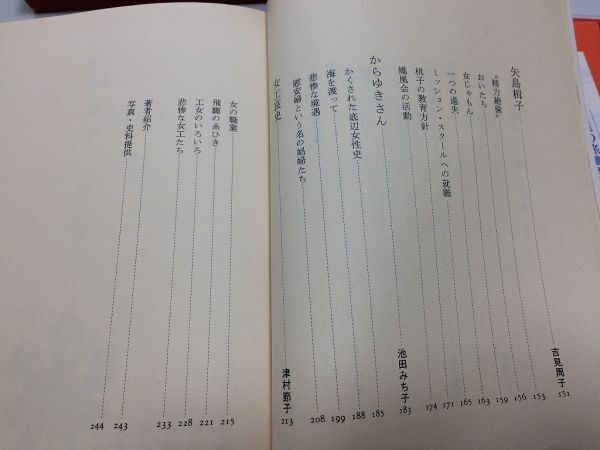 矢島楫子 吉見周子 151
"精力絶倫" 153
おいたち 156
女じゃもん 159
一つの過失 163
ミッション・スクールへの就職 165
楫子の教育方針 171
矯風会の活動 174
からゆきさん 池田みち子 183
かくされた底辺女性史 185
海を渡って 188
悲惨な境遇 199
慰安婦という名の娼婦たち 208
女工哀史 津村節子 213
女の職業 215
飛騨の糸ひき 221
工女のいろいろ 228
悲惨な女工たち 233
著者紹介 243
写真・史料提供 244